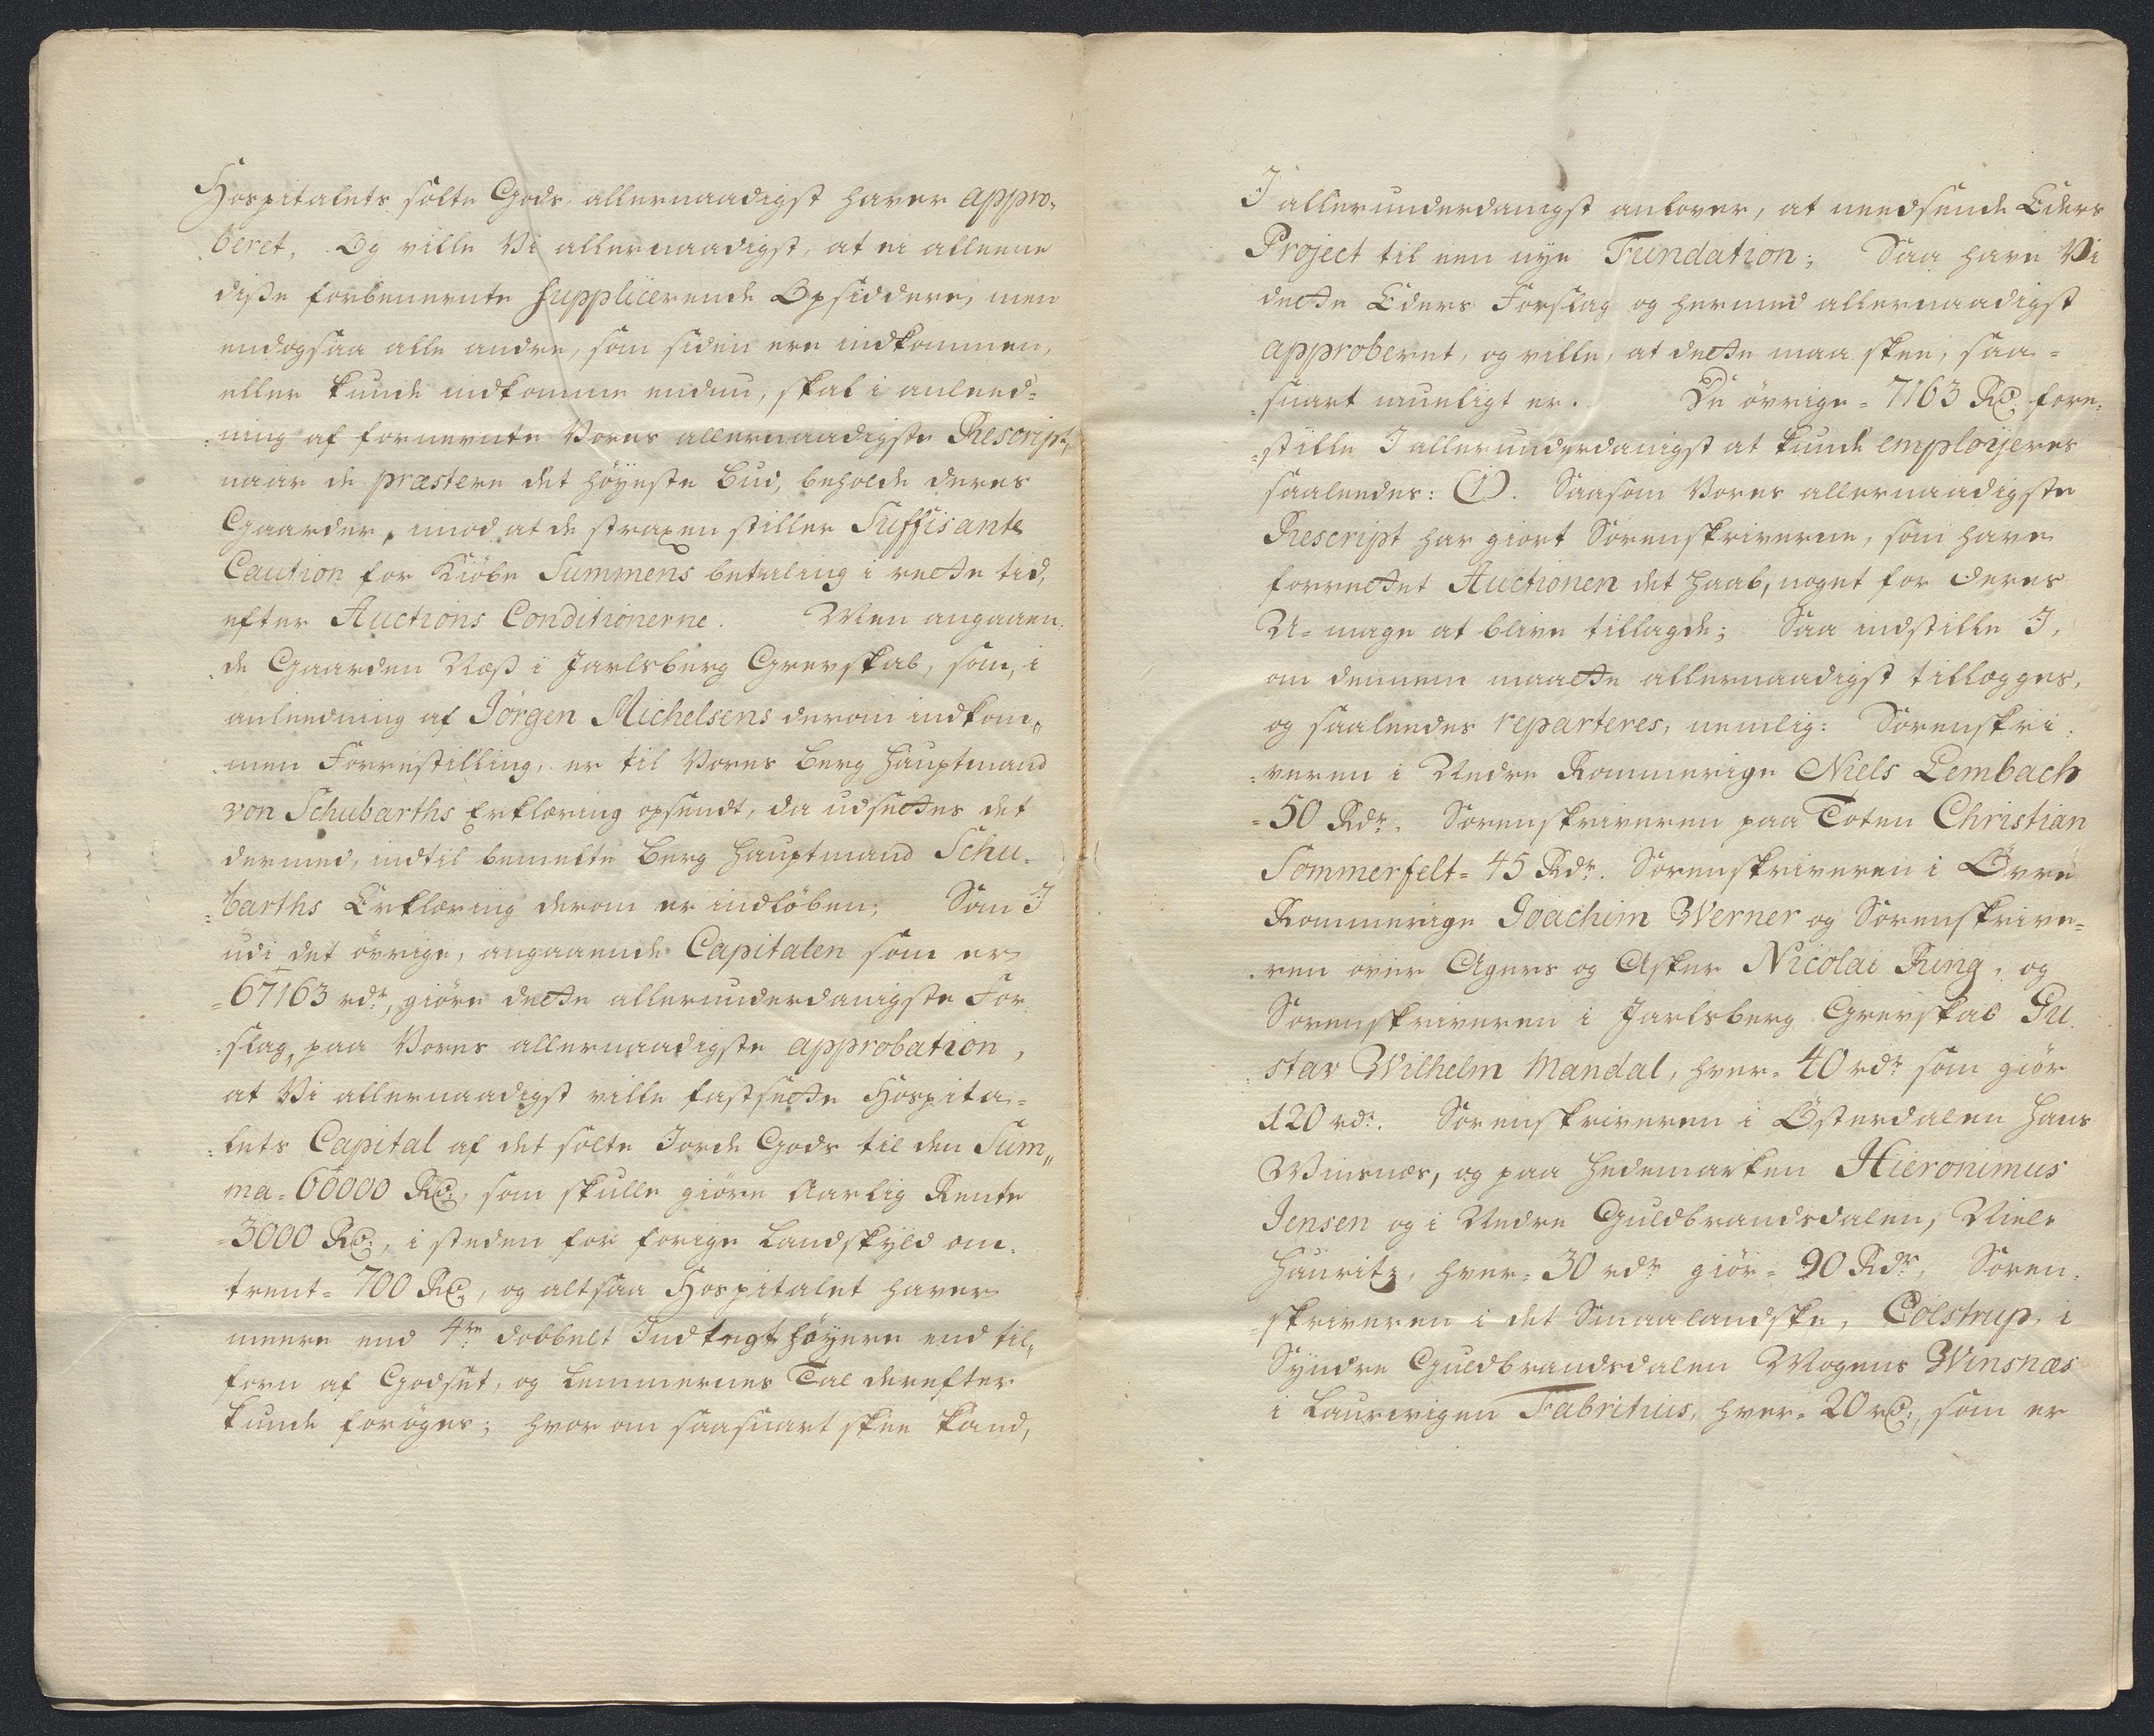 Hospitalets solte Gods, allernaadigst haver appro-
beret, Og ville Vi allernaadigst, at ei alleene
disse forbenevnte supplicerende Opsiddere, men
endogsaa alle andre, som siden ere indkommen,
eller kunde indkomme endnu, skal i anleed-
ning af fornevnte Vores allernaadigste Rescript,
naar de præstere det høyeste bud, beholde deres
Gaarder, imod at de straxen stiller Suffisante
Caution for Kiøbe Summens betaling i rette tid,
efter Auctions Conditionerne. Men angaaen-
de Gaarden Ness i Jarlsberg Grevskab, som, i
anleedning af Jørgen Michelsens derom indkom„
men Forrestilling, er til Vores Berg Hauptmand
von Schubarths Erklæring opsendt, da udsettes det
dermed, indtil bemelte Berg Hauptmand Schu-
barths Erklæring derom er indløben; Som I
udi det øvrige, angaaende Capitalen som er
=67163 rdr, giøre dette allerunderdanigste For-
slag, paa Vores allernaadigste approbation,
at Vi allernaadigst ville fastsette Hospita-
lets Capital af det solte Jorde Gods til den Sum„
ma = 60000 Rd:, som skulle giøre Aarlig Rente
=3000 Rd:, i steden for forige Landskyld om-
trent = 700 Rd:, og altsaa Hospitalet haver
meere end 4re dobbelt Indtægt høyere end til„
forn af Godset, og Lemmernes Tal derefter
kunde forøges; hvor om saasnart skee kand,
I allerunderdanigst anlover, at needsende Eders
Project til een nye Fundation; Saa have Vi
dette Eders Forslag og hermed allernaadigst
approberet, og ville, at dette maa skee, saa-
snart mueligt er. De øvrige = 7163 Rd: fore-
stille I allerunderdanigst at kunde employeres
saaleedes: (1). Saasom Vores allernaadigste
Rescript har giort Sorenskriverne, som have
forrettet Auctionen det haab, noget for deres
U-mage at blive tillagde; Saa indstille I,
om dennem maatte allernaadigst tillægges,
og saaleedes reparteres, nemlig: Sorenskri-
veren i Nedre Rommerige Niels Lembach
=50 Rdr. Sorenskriveren paa Toten Christian
Sommerfelt = 45 Rdr. Sorenskriveren i Øvre
Rommerige Joachim Werner og Sorenskrive-
ren over Agers og Asker Nicolai Ring, og
Sorenskriveren i Jarlsberg Grevskab Gu-
stav Wilhelm Mandal, hver = 40 rdr som giør
120 rdr. Sorenskriveren i Østerdalen Hans
Winsnæs, og paa Hedemarken Hieronimus
Jensen og i Nedre Guldbrandsdalen, Niels
Hauritz, hver = 30 rdr giør = 90 Rdr, Soren-
skriveren i det Smaalandske, Colstrup, i
Syndre Guldbrandsdalen Mogens Winsnæs
i Laurvigen Fabritius, hver = 20 rd:, som er